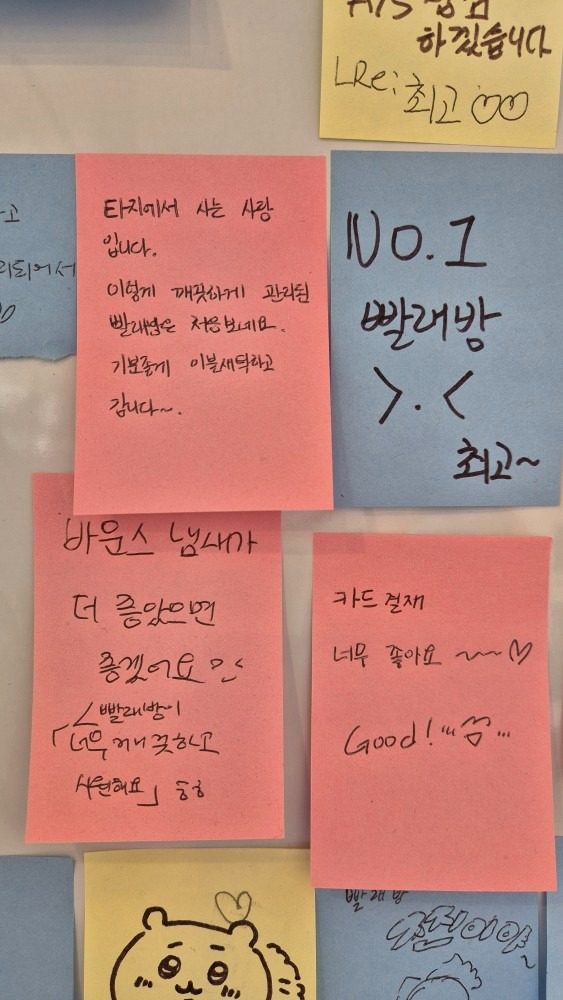 하겠습니다
LRe: 최고
타지에서 사는 사람
입니다.
이렇게 깨끗하게 관리된
빨래방은 처음보네요.
기분좋게 이불세탁하고
갑니다~.
NO.1
빨래방
>.<
최고~
바운스 냄새가
더 좋았으면
좋겠어요
빨래방이
「너무 깨끗하고
시원해요」 ㅎㅎ
카드결재
너무 좋아요 ~~~♡
Good!
빨래방